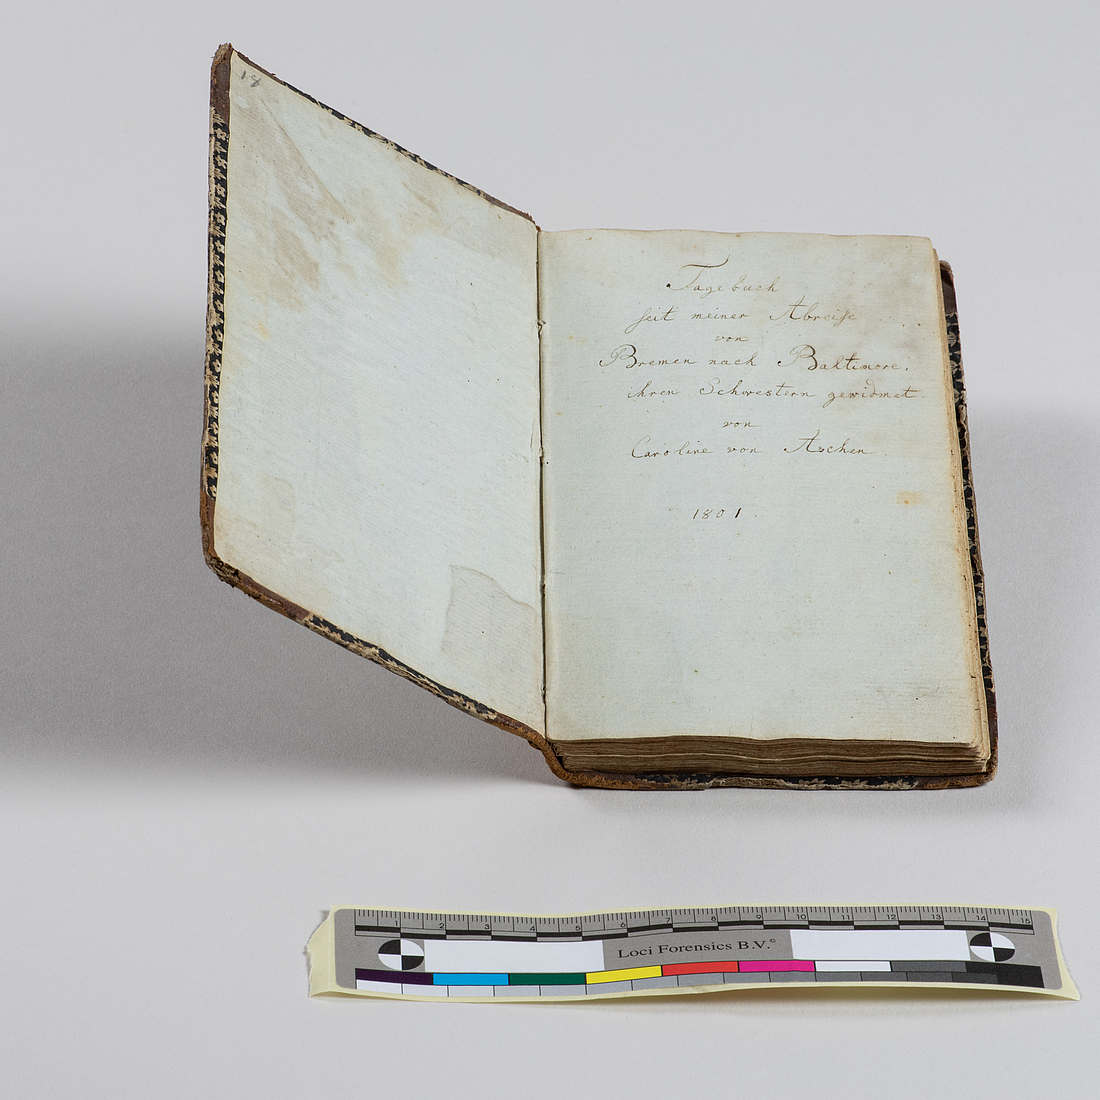 14
Tagebuch
seit meiner Abreise
von
Bremen nach Baltimore,
ihren Schwestern gewidmet.
von
Caroline von Aschen
1801.
1 2 3 4 5 6 7 8 9 10 11 12 13 14 15
Loci Forensics B.V.©